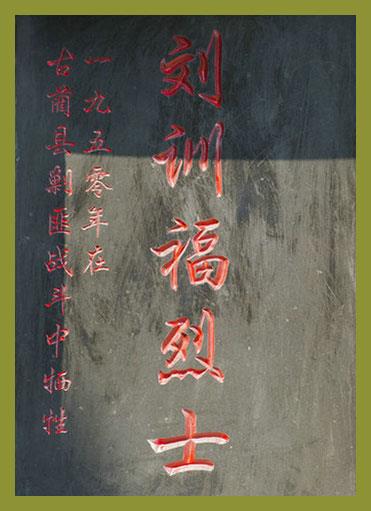 刘训福烈士
一九五零年在
古蔺县剿匪战斗中牺牲